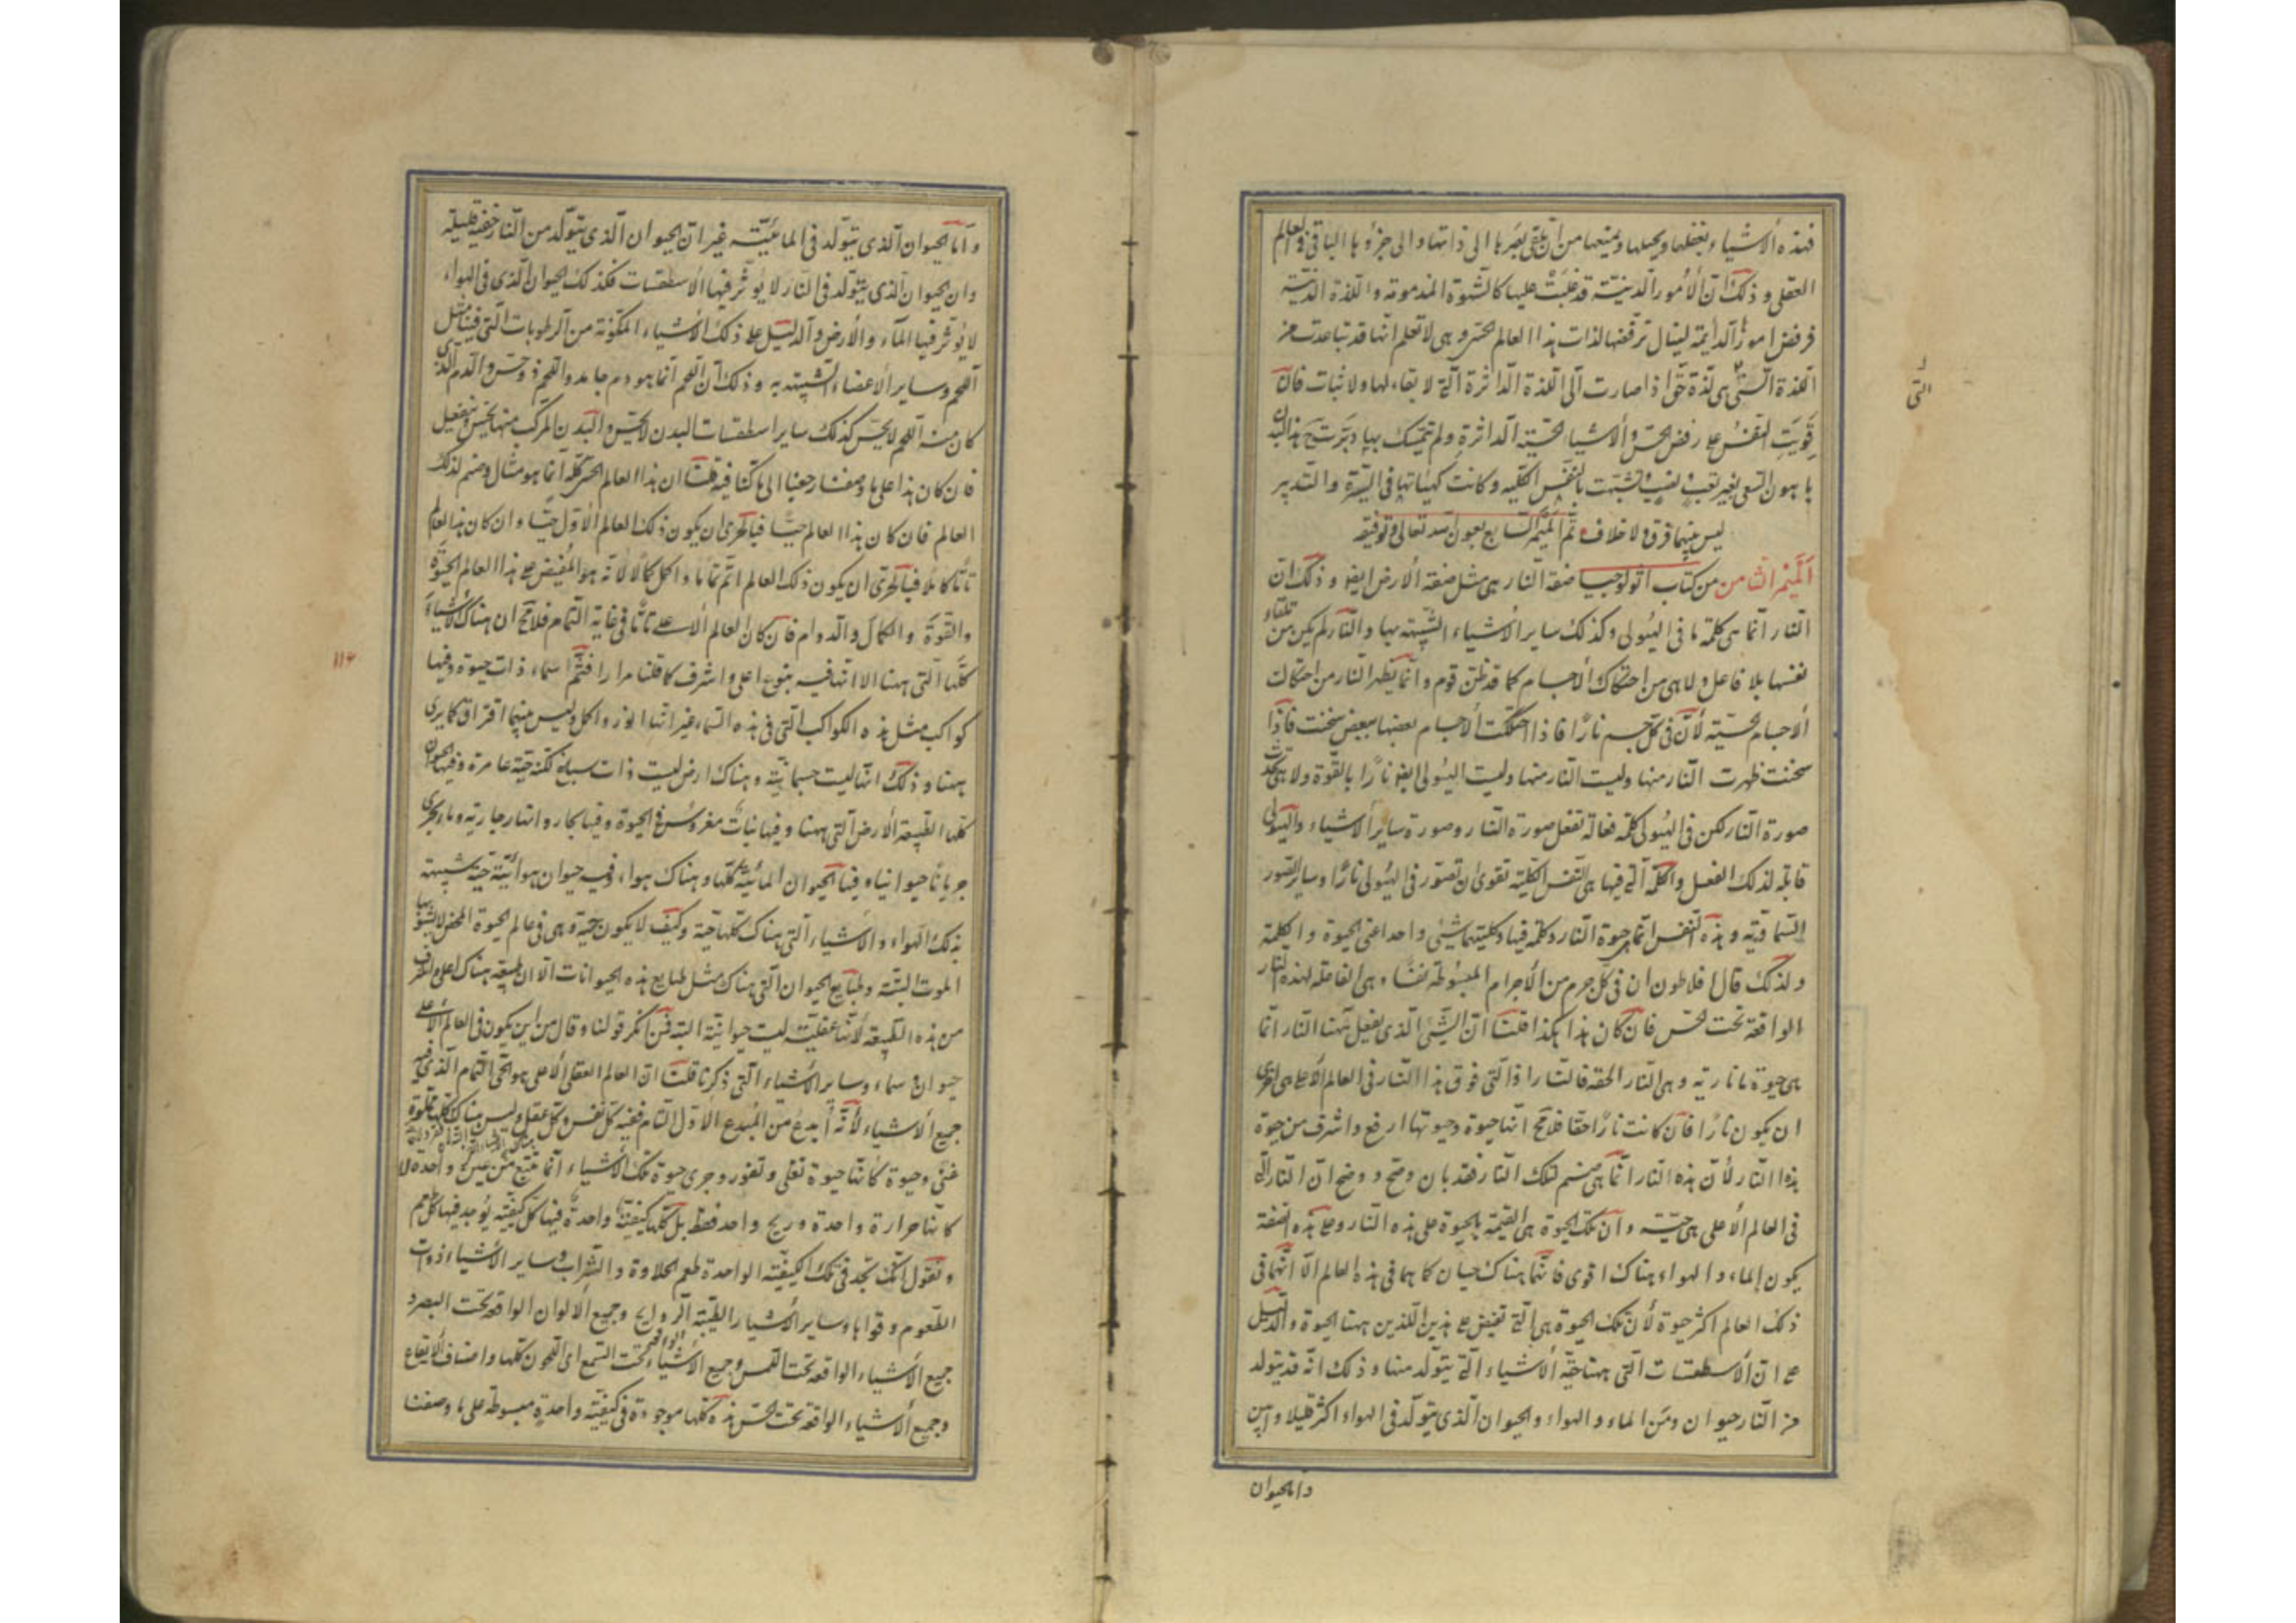 فهذه الأشياء تغفلها وتحيلها وتمنعها من ان تلقى بصرها الى ذاتها والى جزؤها الباقى فى العالم
العقلى وذلك ان الأمور الدنيئة قد غلبت عليها كالشهوة المذمومة واللذة الدنيئة
فرفض امور الدائمة لينال ترفضها لذات هذا العالم الحسى وهى لا تعلم انها قد تباعدت من
اللذة التى هى لذة حق اذا صارت الى اللذة الداثرة التى لا بقاء لها ولا ثبات فان
قويت النفس على رفض الحس والأشياء الحسية الداثرة ولم تتمسك بها دبرت هذا البدن
باهون السعى بغير تعب نصب وتشبهت بالنفس الكلية وكانت كهيئاتها فى السيرة والتدبير
ليس بينهما فرق ولا خلاف تم الميمر السابع بعون الله تعالى وتوفيقه
الميمر الثامن من كتاب اثولوجيا صفة النار هى مثل صفة الأرض ايضا وذلك ان
النار انما هى كلمة ما فى الهيولى وكذلك ساير الأشياء الشبيهة بها والنار لم تكن من تلقاء
نفسها بلا فاعل ولا هى من احتكاك الأجسام كما قد ظن قوم وانما تظهر النار من احتكاك
الأجسام الحسية لأن فى كل جسم نارا فاذا احتكت الأجسام بعضها ببعض سخنت فاذا
سخنت ظهرت النار منها وليست النار منها وليست الهيولى ايضا نارا بالقوة ولا هى تحدث
صورة النار لكن فى الهيولى كلمة فعالة تفعل صورة النار وصورة ساير الأشياء والهيولى
قابلة لذلك الفعل والكلمة التى فيها هى النفس الكلية تقوى ان تصور فى الهيولى نارا وساير الصور
السماوية وهذه النفس انما هى حيوة النار وكلمة فيها وكليتهما شيئ واحد اعنى الحيوة والكلمة
ولذلك قال افلاطون ان فى كل جرم من الأجرام المبسوطة نفسا وهى الفاعلة لهذه النار
الواقعة تحت الحس فان كان هذا هكذا قلنا ان الشئ الذى يفعل ههنا النار انما
هى حيوة ما نارية وهى النار الحقة فالنار اذا التى فوق هذا النار فى العالم الأعلى هى احرى
ان يكون نارا فان كانت نارا حقا فلا محالة انها حيوة وحيوتها ارفع واشرف من حيوة
هذا النار لأن هذه النار انما هى صنم لتلك النار فقد بان وصح ووضح ان النار التى
فى العالم الأعلى هى حية وان تلك الحيوة هى القيمة بالحيوة على هذه النار وعلى هذه الصفة
يكون الماء والهواء هناك اقوى فانهما هناك حيان كما هما فى هذا العالم الا انهما فى
ذلك العالم اكثر حيوة لأن تلك الحيوة هى التى تفيض على هذين اللذين ههنا الحيوة والدليل
على ان الأسطقسات التى ههنا حية الأشياء التى يتولد منها وذلك انه قد يتولد
من النار حيوان ومن الماء والهواء والحيوان الذى يتولد فى الهواء اكثر قليلا وابين
واما الحيوان
التى
واما الحيوان الذى يتولد فى المائية غير ان الحيوان الذى يتولد من النار خفية قليلة
وان الحيوان الذى يتولد فى النار لا يؤثر فيها الأسطقسات فكذلك الحيوان الذى فى الهواء
لا يؤثر فيها الماء والأرض والدليل على ذلك الأشياء المكونة من الرطوبات التى فينا مثل
اللحم وساير الأعضاء الشبيهة به وذلك ان اللحم انما هو دم جامد واللحم ذو حس والدم الذى
كان منه اللحم لا يحس كذلك ساير اسطقسات البدن لا يحس والبدن المركب منها يحس وينفعل
فان كان هذا على ما وصفنا رجعنا الى ما كنا فيه قلنا ان هذا العالم الحسى كله انما هو مثال وصنم لذلك
العالم فان كان هذا العالم حيا فبالحرى ان يكون ذلك العالم الأول حيا وان كان هذا العالم
تاما كاملا فبالحرى ان يكون ذلك العالم اتم تماما واكمل كمالا لأنه هو المفيض على هذا العالم الحيوة
والقوة والكمال والدوام فان كان العالم الأعلى تاما فى غاية التمام فلا محالة ان هناك الأشياء
كلها التى ههنا الا انها فيه بنوع اعلى واشرف كما قلنا مرارا فثم سماء ذات حيوة وفيها
كواكب مثل هذه الكواكب التى فى هذه السماء غير انها انور واكمل وليس بينهما افتراق كما يرى
ههنا وذلك انها ليست جسمانية وهناك ارض ليست ذات سباخ لكنه حية عامرة وفيها الحيوان
كلها الطبيعة الأرض التى ههنا وفيها نبات مغروس فى الحيوة وفيها بحار وانهار جارية وماء يجرى
جريانا حيوانيا وفيها الحيوان المائية كلها وهناك هواء وفيه حيوان هوائية حية شبيهة
بذلك الهواء والأشياء التى هناك كلها حية وكيف لا يكون حية وهى فى عالم الحيوة المحض لا يشوبها
الموت البتة وطبايع الحيوان التى هناك مثل طبايع هذه الحيوانات الا ان الطبيعة هناك اعلى واشرف
من هذه الطبيعة لأنها عقلية ليست حيوانية البتة فمن انكر قولنا وقال من اين يكون فى العالم الأعلى
حيوان وسماء وساير الأشياء التى ذكرنا قلنا ان العالم العقلى الأعلى هو الحى التام الذى فيه
جميع الأشياء لأنه ابدع من المبدع الأول التام ففيه كل نفس وكل عقل وليس هناك
كلها مملوة غنى وحيوة كأنها حيوة تغلى وتفور وجرى حيوة تلك الأشياء انما تنبع من عين واحدة لا
كانها حرارة واحدة وريح واحد فقط بل كلها كيفية واحدة فيها كل كيفية يوجد فيها كل طعم
ونقول انك تجد فى تلك الكيفية الواحدة طعم الحلاوة والشراب وساير الأشياء ذوات
الطعوم وقواها وساير الأشياء الطيبة الروايح وجميع الألوان الواقعة تحت البصر و
جميع الأشياء الواقعة تحت اللمس وجميع الأشياء الواقعة تحت السمع اى اللحون كلها واصناف الايقاع
وجميع الأشياء الواقعة تحت الحس هذه كلها موجودة فى كيفية واحدة مبسوطة على ما وصفنا